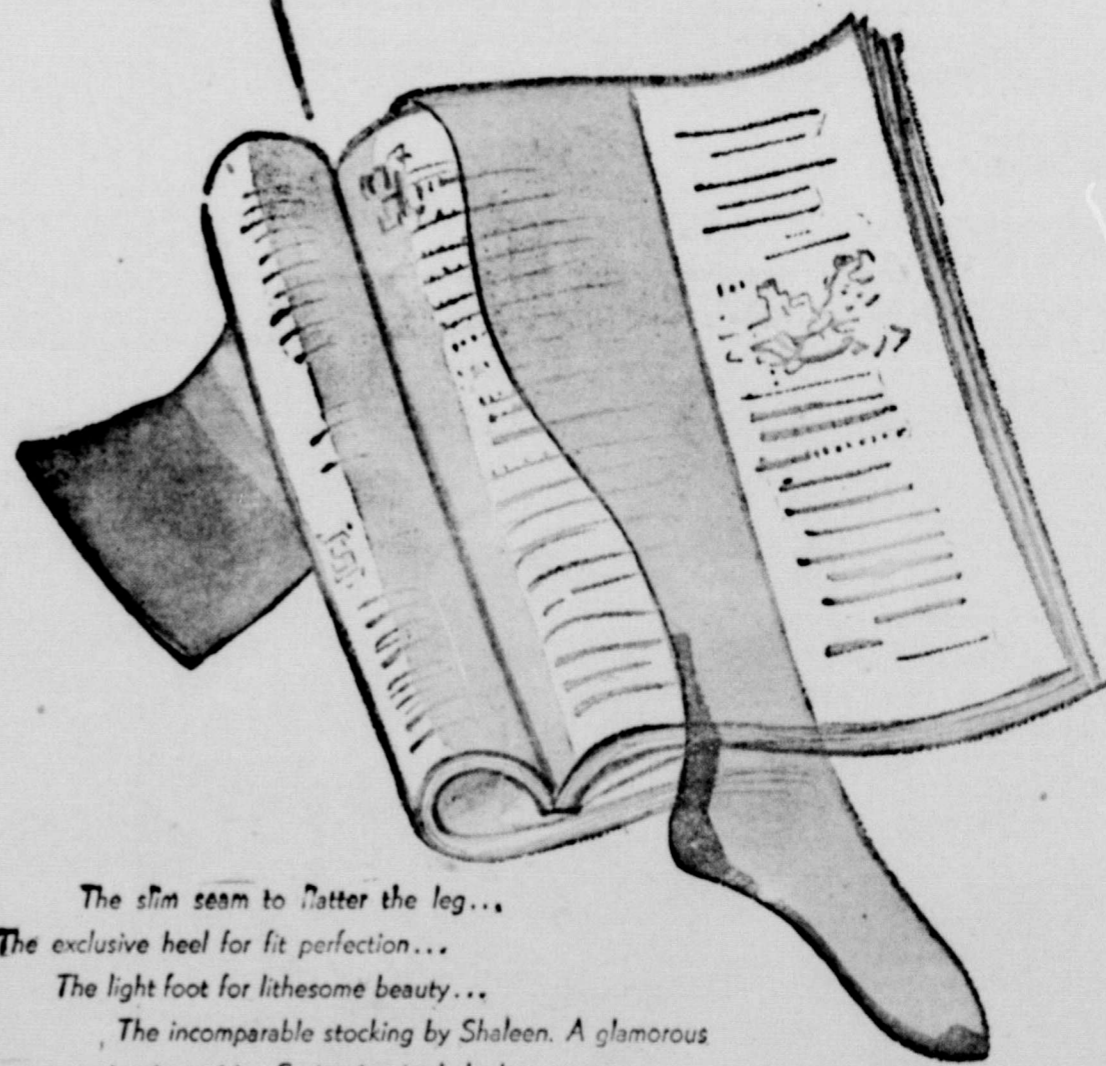 The slim seam to flatter the leg...
The exclusive heel for fit perfection...
The light foot for lithesome beauty...
The incomparable stocking by Shaleen. A glamorous